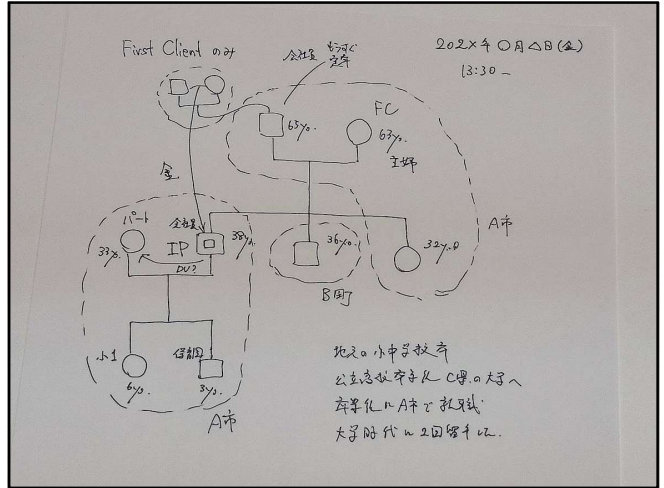 First Client のみ
202X年 〇月△日(金)
13:30 –
会社員 もうすぐ
定年
FC
65y.o.
63y.o.
主婦
金
A市
パート
会社員
33y.o.
IP
38y.o.
DV?
36y.o.
32y.o.
B町
小1
保育園
6y.o.
3y.o.
A市
地元の小中学校卒
公立高校卒業後 C県の大学へ
卒業後にA市で就職
大学時代に2回留年した。